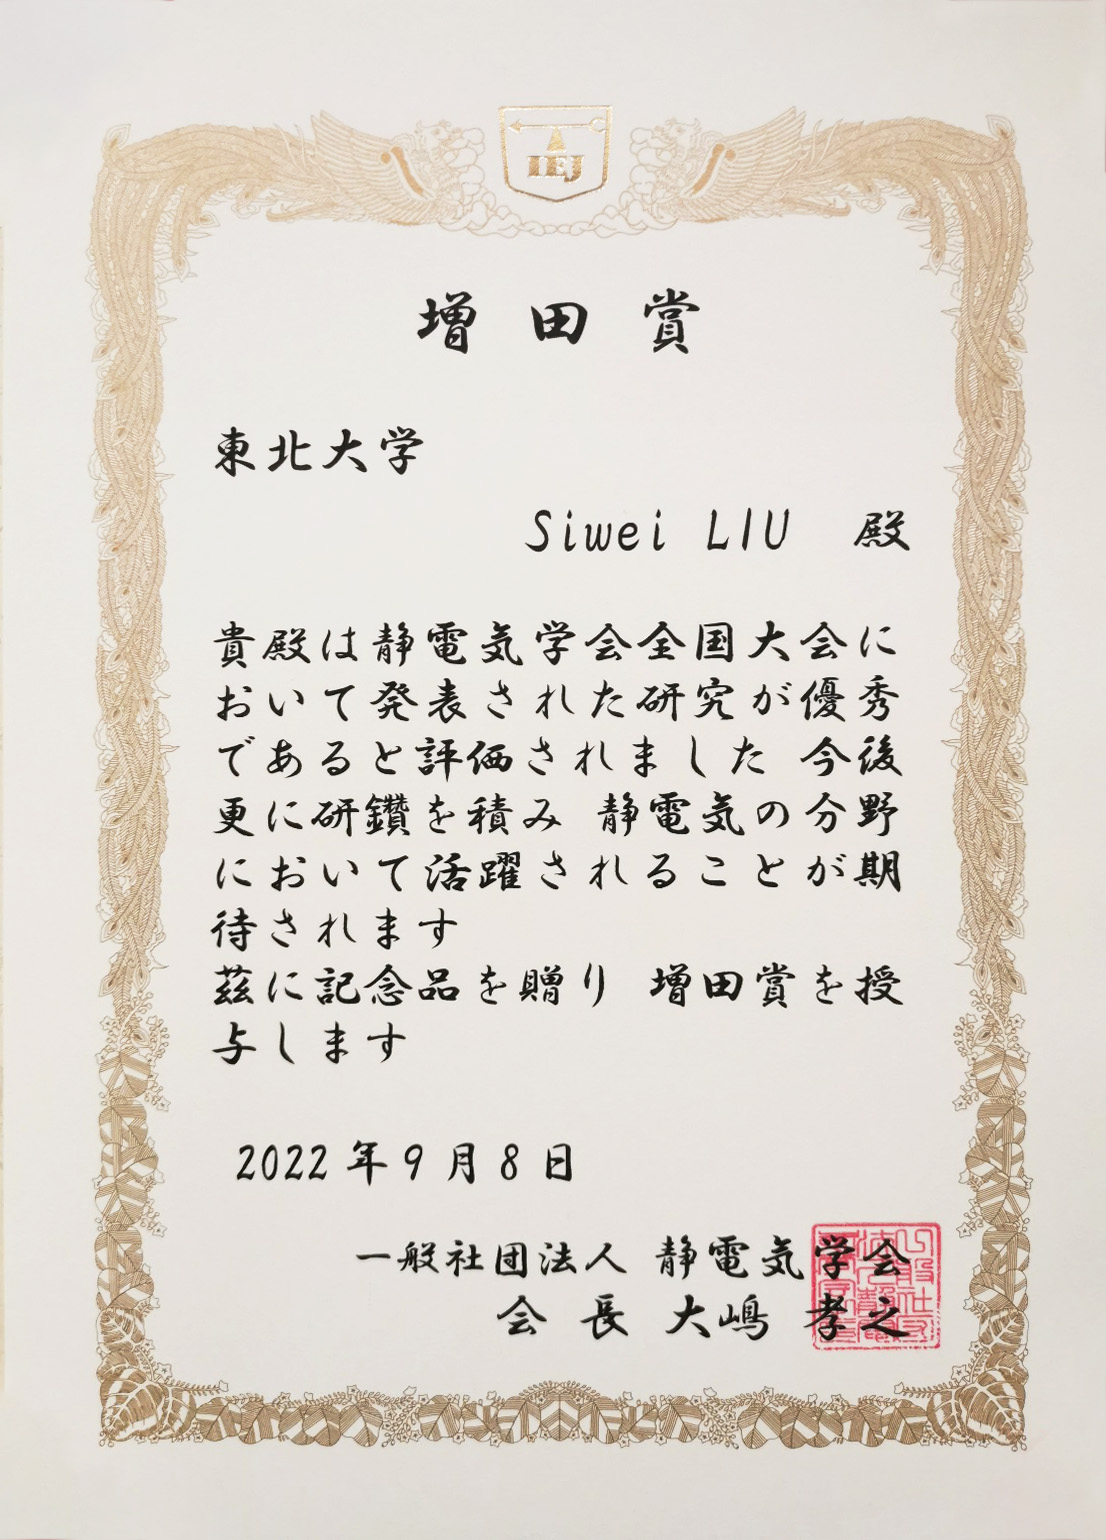 IEJ
増田賞
東北大学
Siwei LIU 殿
貴殿は静電気学会全国大会に
おいて発表された研究が優秀
であると評価されました 今後
更に研鑽を積み 静電気の分野
において活躍されることが期
待されます
茲に記念品を贈り 増田賞を授
与します
2022年9月8日
一般社団法人 静電気学会
会長 大嶋 孝之